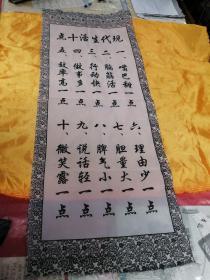 现代生活十点
一、嘴巴甜一点
二、脑筋活一点
三、行动快一点
四、做事多一点
五、效率高一点
六、理由少一点
七、胆量大一点
八、脾气小一点
九、说话轻一点
十、微笑露一点